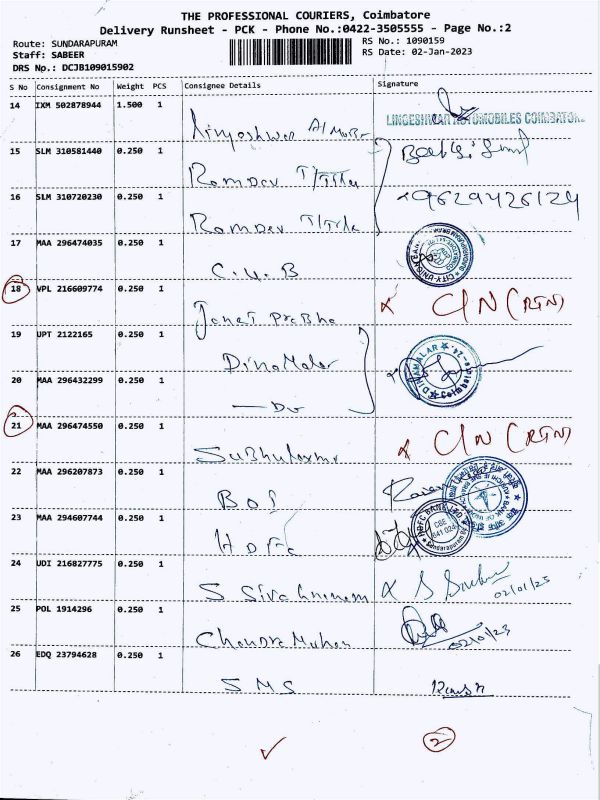 THE PROFESSIONAL COURIERS, Coimbatore
Delivery Runsheet - PCK - Phone No.:0422-3505555 - Page No.:2
Route: SUNDARAPURAM RS No.: 1090159
Staff: SABEER RS Date: 02-Jan-2023
DRS Np.: DCJB109015902
S No Consignment No Weight PCS Consignee Details Signature
14 IXM 502878944 1.500 1
LINGESHWAR AUTOMOBILES COIMBATORE
15 SLM 310581440 0.250 1
Ramdev T/Title
16 SLM 310720230 0.250 1 9629426124
Ramdev T/Title
17 MAA 296474035 0.250 1
C.U.B
18 VPL 216609774 0.250 1 x C/N (RTN)
Janet Prabha
19 UPT 2122165 0.250 1
Dinamalar DINAMALAR
20 MAA 296432299 0.250 1
— Do
21 MAA 296474550 0.250 1 x C/N (RTN)
Subhulaxmi
22 MAA 296207873 0.250 1
BOI
23 MAA 294607744 0.250 1 HDFC BANK LTD
CBE 641 024
Sundarapuram
HDFC
24 UDI 216827775 0.250 1
S Sivahnmam x S 02/01/23
25 POL 1914296 0.250 1
Chandra Mohan 02/01/23
26 EDQ 23794628 0.250 1
SMS
2